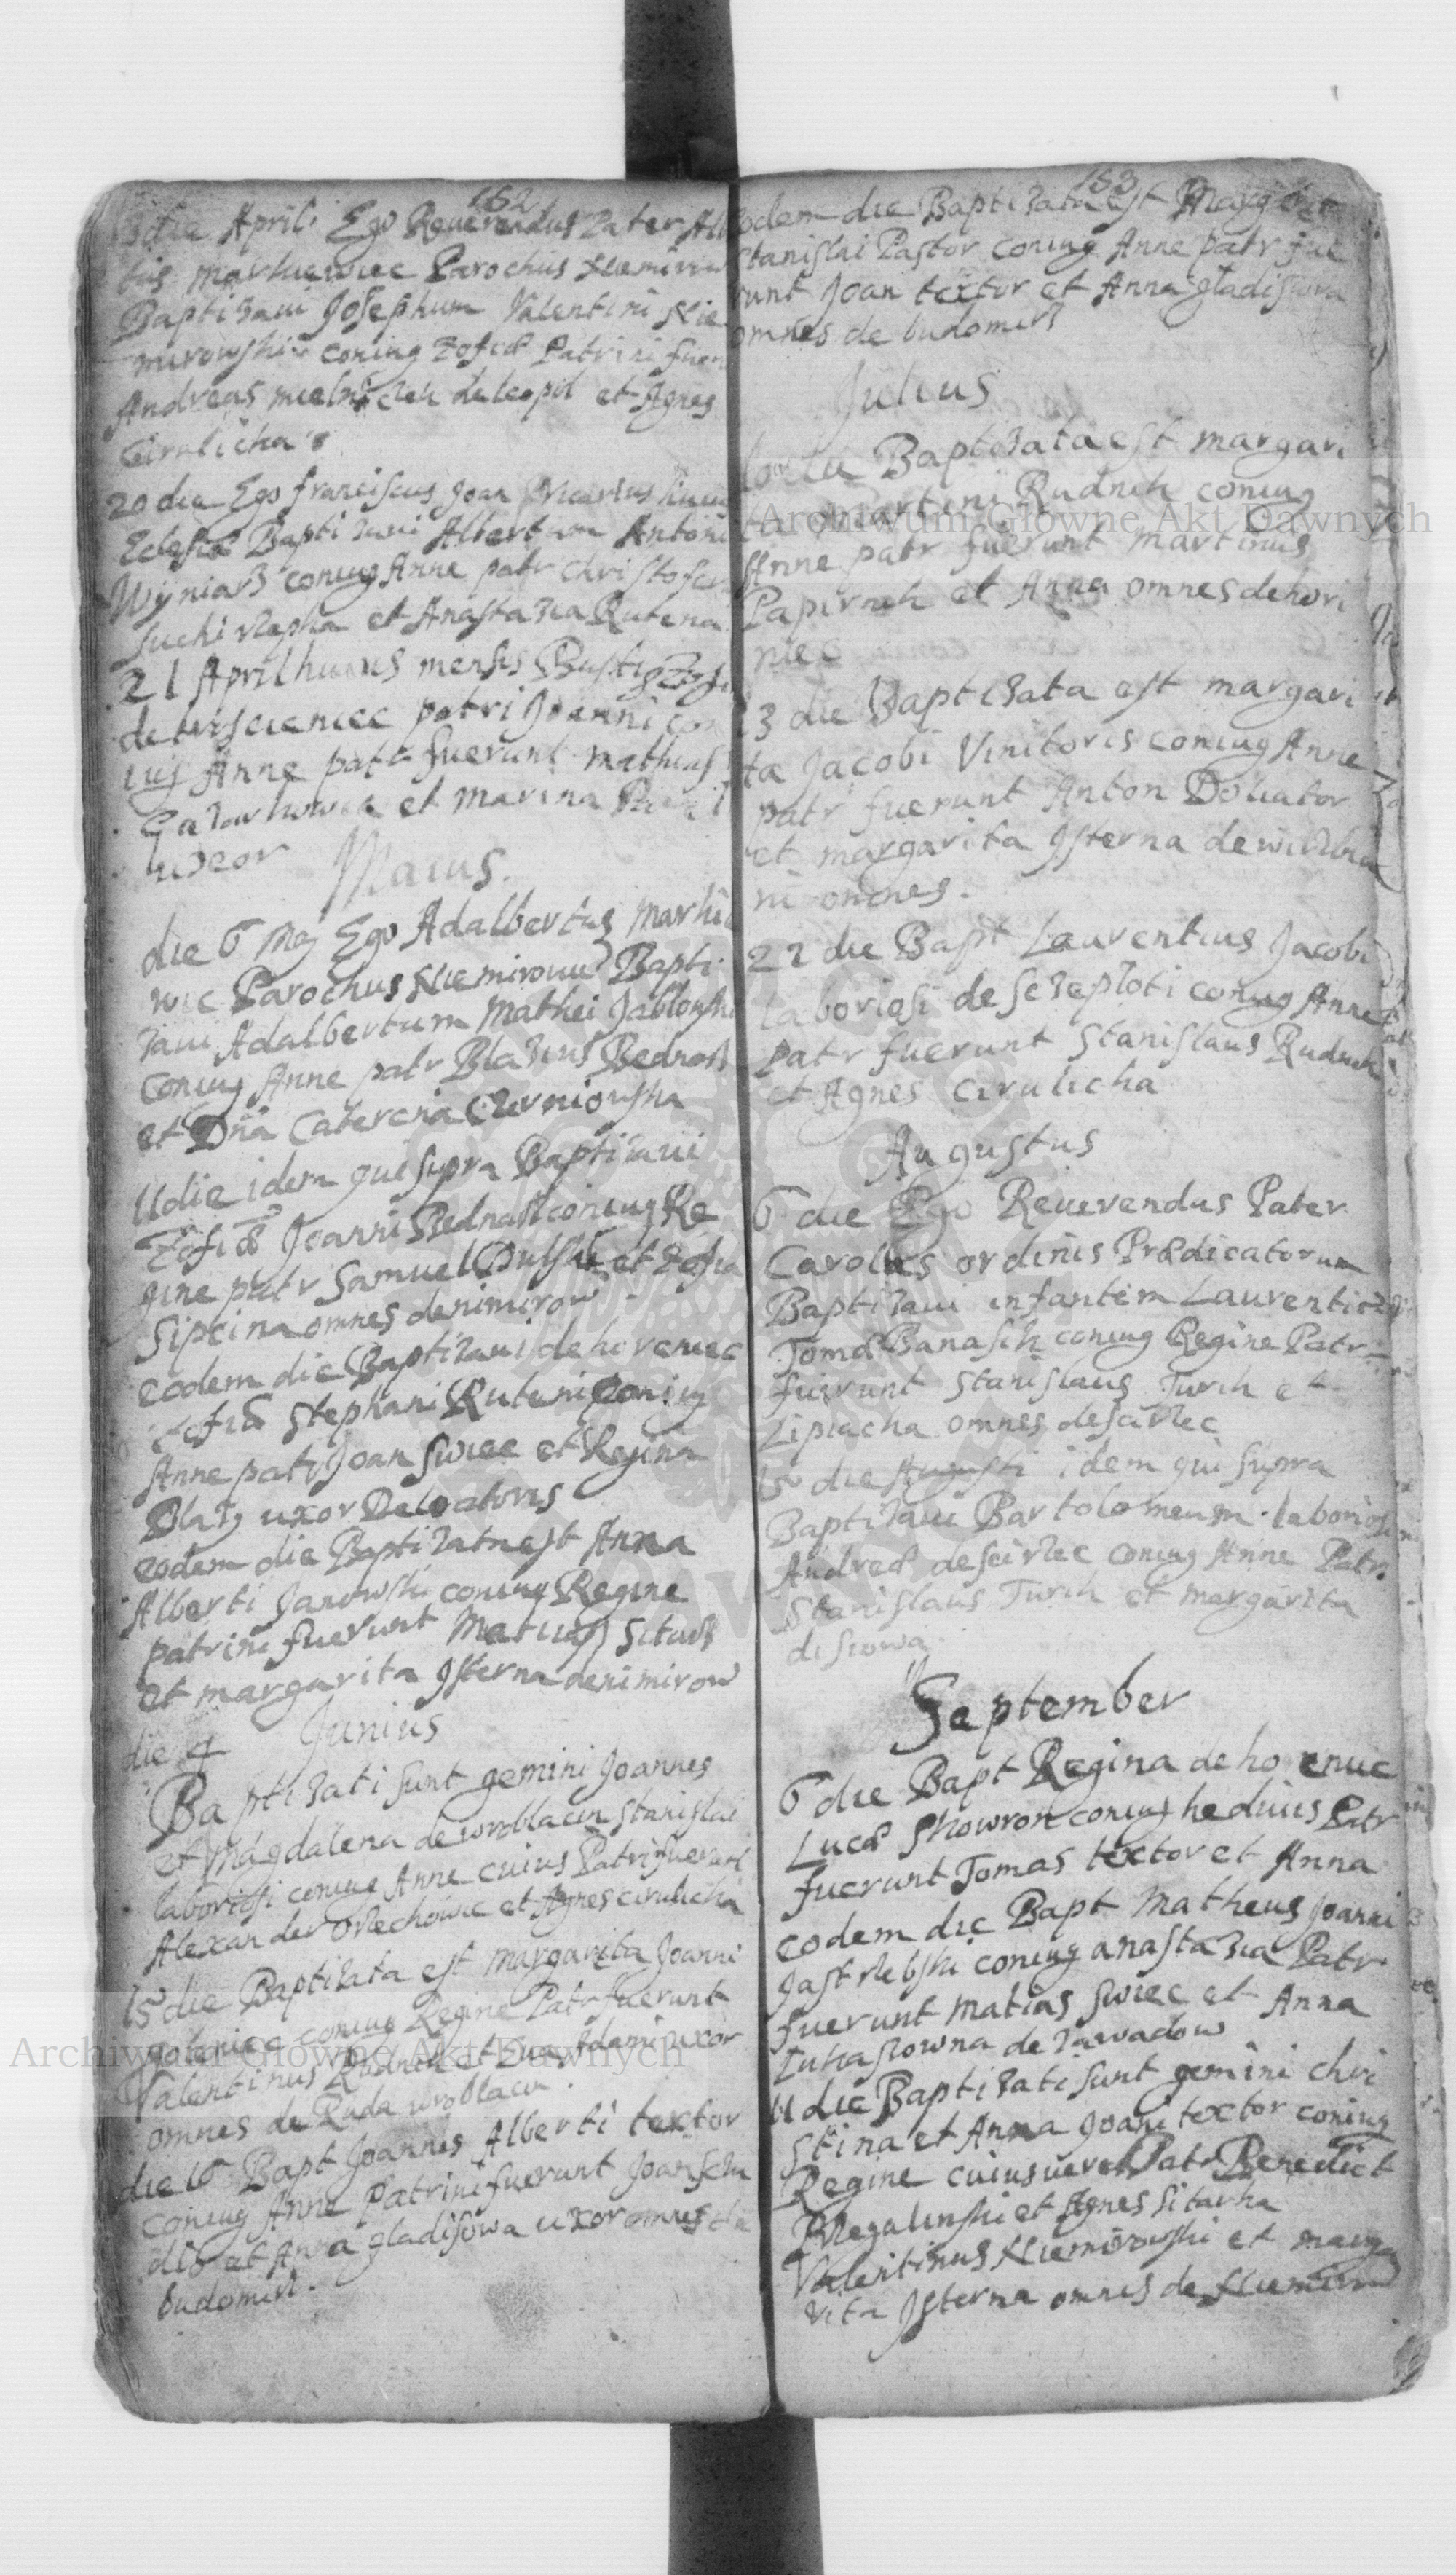 152
die Aprili Ego Reuerendus Pater Alb
tus Markiewiec Parochus Niemirow
Baptizaui Josephum Valentini Nie
mirowski coniug Zofiæ Patrini fuer
Andreas de leopol et Agnes
Cirulicha
20 die Ego franciscus Joan
Eclesiæ Baptizaui Albertum Antoni
Wyniarz coniug Anne patr christofer
et Anastazia Rutena
21 April huius mensis
patri Joanni con
iug Anne patr fuerunt mathias
et marina
uxor
Maius.
die 6 Maj Ego Adalbertus Markie
wic Parochus Niemirouie Bapti
zaui Adalbertum Mathei Jablonski
coniug Anne patr Blazius Bednarz
et Dña Caterena Czerniowska
11 die idem qui supra Baptizaui
Zofiæ Joanni Bednarz coniug Re
gine patr Samuel Dulski et Zofia
Sipcina omnes denimirow
eodem die Baptizaui de horeniec
Zofiæ Stephani Ruteni Coniug
Anne patr Joan Swiec et Regina
Blazy uxor Deloatoris
eodem die Baptizatnest Anna
Alberti Janowski coniug Regine
patrini fuerunt Matias Sitarz
et margarita Jsterna denimirow
Junius
die 9
Baptizati sunt gemini Joannes
et Magdalena de wroblacin Stanislai
laboriosi coniug Anne cuius Patri fuerunt
Alexander Orzechowic et Agnes cirulicha
15 die Baptizata est margarita Joanni
goleniec coniug Regine Patr fuerunt
Valentinus Rudnik et Eua Adami uxor
omnes de Ruda wroblacin.
die 16 Bapt Joannis Alberti textor
coniug Anne Patrini fuerunt Joan
et Anna gladisowa uxor omnes de
budomirz.
153
eodem die Baptizata est Margarit
Stanislai Pastor coniug Anne patr fue
runt Joan textor et Anna gladisowa
omnes de budomirz
Julius
Baptizata est margari
ta Marteni Rudnik coniug
Anne patr fuerunt martinus
Papirnik et Anna omnes de hori
niec
13 die Baptizata est margari
ta Jacobi Vinitoris coniug Anne
patr fuerunt Anton Doliator
et margarita Jsterna de
ni omnes.
22 die Bapt Laurentius Jacobi
laboriosi de coniug Anne
patr fuerunt Stanislaus Rudnik
et Agnes cirulicha
Augustus
6 die Ego Reuerendus Pater
Carolus ordinis Prædicatorum
Baptizaui infantem Laurentio
Tomæ Banasik coniug Regine Patr
fuerunt Stanislaus Turik et
Lipiacha omnes
15 die Augusti idem qui supra
Baptizaui Bartolomeum laboriosi
Andreæ coniug Anne Patr.
Stanislaus Turik et margarita
disiowa
September
6 die Bapt Regina de ho enuc
Lucæ Skowron coniug hediuis Patr
fuerunt Tomas textor et Anna
eodem die Bapt Matheus Joanni
Jastrzebski coniug anastazia Patr
fuerunt matias swiec et Anna
Lukasiowna de zawadow
11 die Baptizati sunt gemini chri
stina et Anna Joani textor coniug
Regine cuius uero Patr Benedict
et Agnes Sitarka
Valentinus Niemirowski et marga
rita Jsterna omnes de Niemirow
Archiwum Główne Akt Dawnych
Archiwum Główne Akt Dawnych